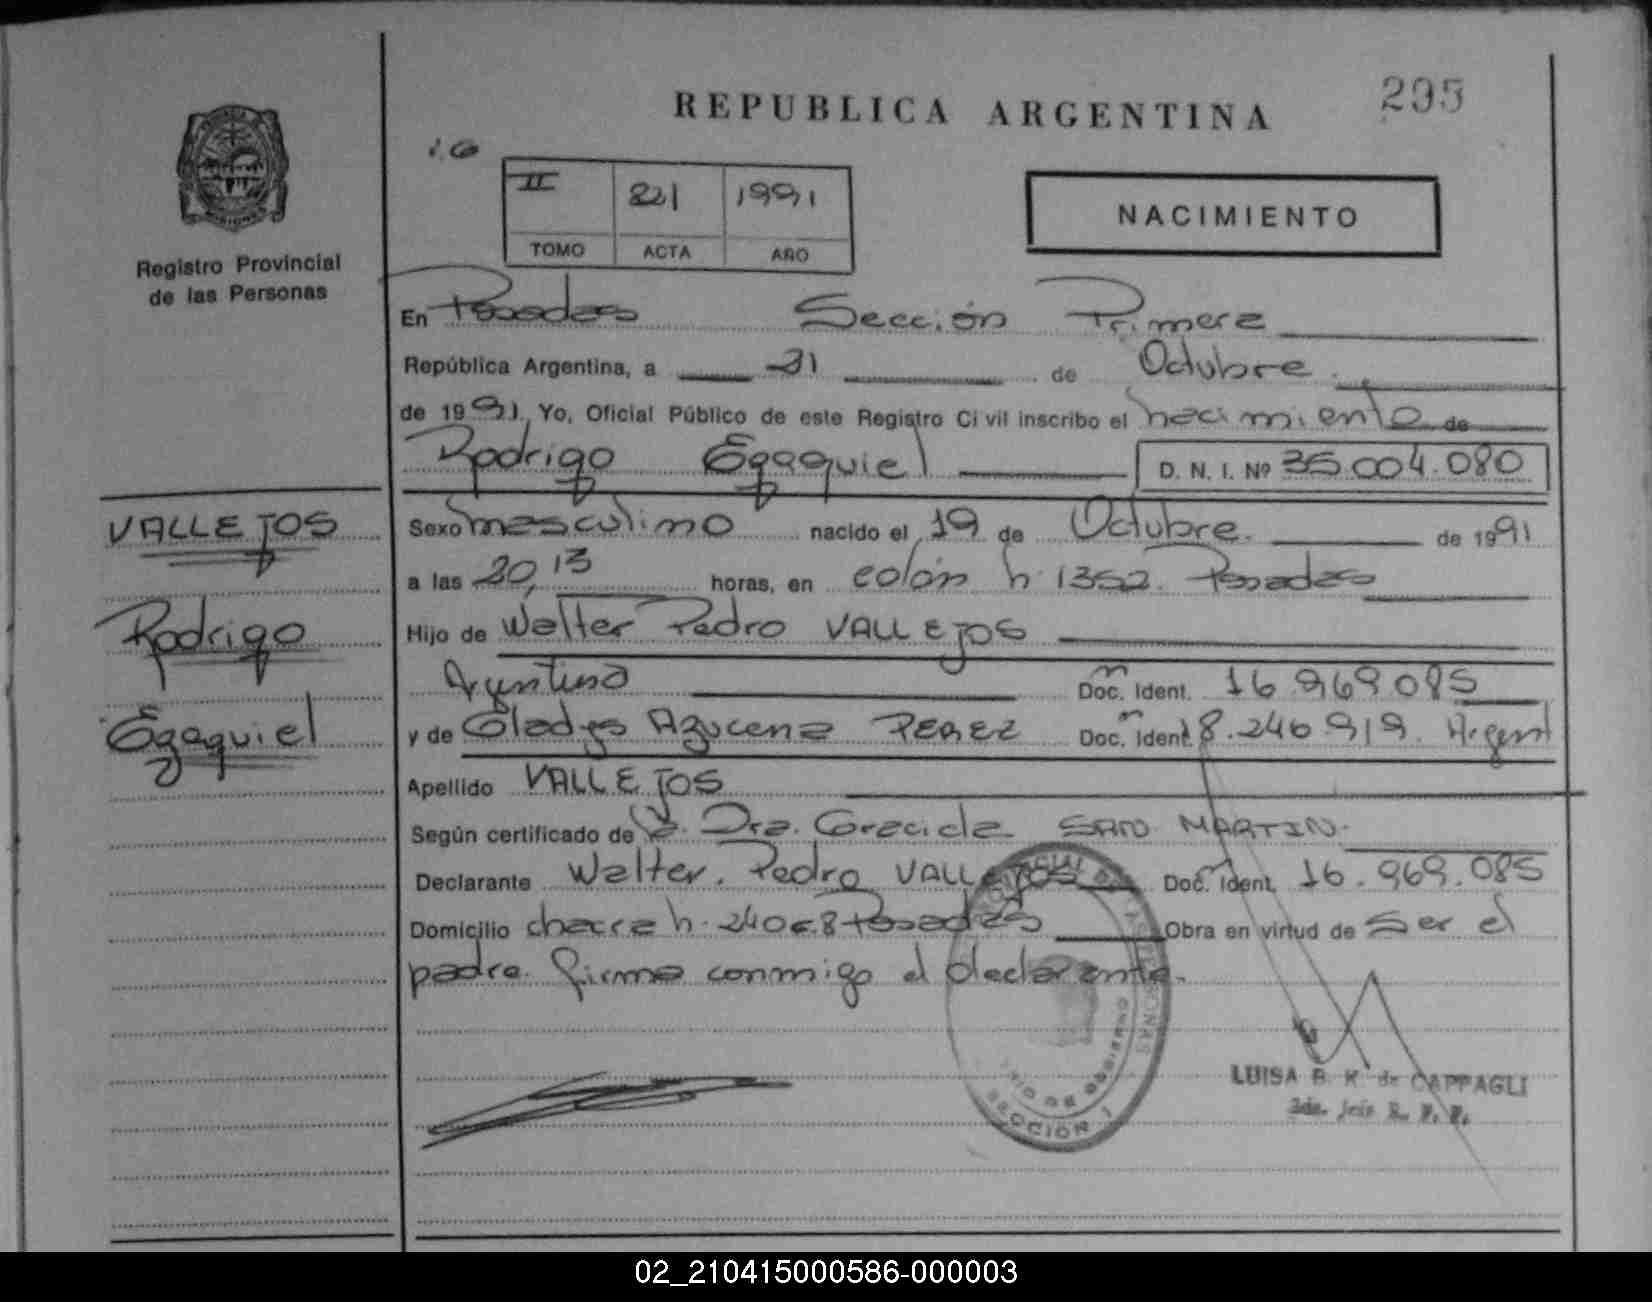 REPUBLICA ARGENTINA
295
Registro Provincial
de las Personas
II 221 1991
TOMO ACTA AÑO
NACIMIENTO
En Posadas Sección Primera
República Argentina, a 31 de Octubre
de 1991, Yo, Oficial Público de este Registro Civil inscribo el nacimiento de
Rodrigo Ezequiel D. N. I. Nº 36.004.080
VALLEJOS
Rodrigo
Ezequiel
Sexo masculino nacido el 19 de Octubre de 1991
a las 20,13 horas, en colón n. 1352. Posadas
Hijo de Walter Pedro VALLEJOS
Argentino Doc. Ident. 16.969.085
y de Gladys Azucena PEREZ Doc. Ident. 18.246.919. Argent
Apellido VALLEJOS
Según certificado de la Dra. Graciela SAN MARTIN.
Declarante Walter Pedro VALLEJOS Doc. Ident. 16.969.085
Domicilio chacra Posadas Obra en virtud de Ser el
padre. firma conmigo el declarante.
SECCION 1
LUISA B. K. de CAPPAGLI
02_210415000586-000003